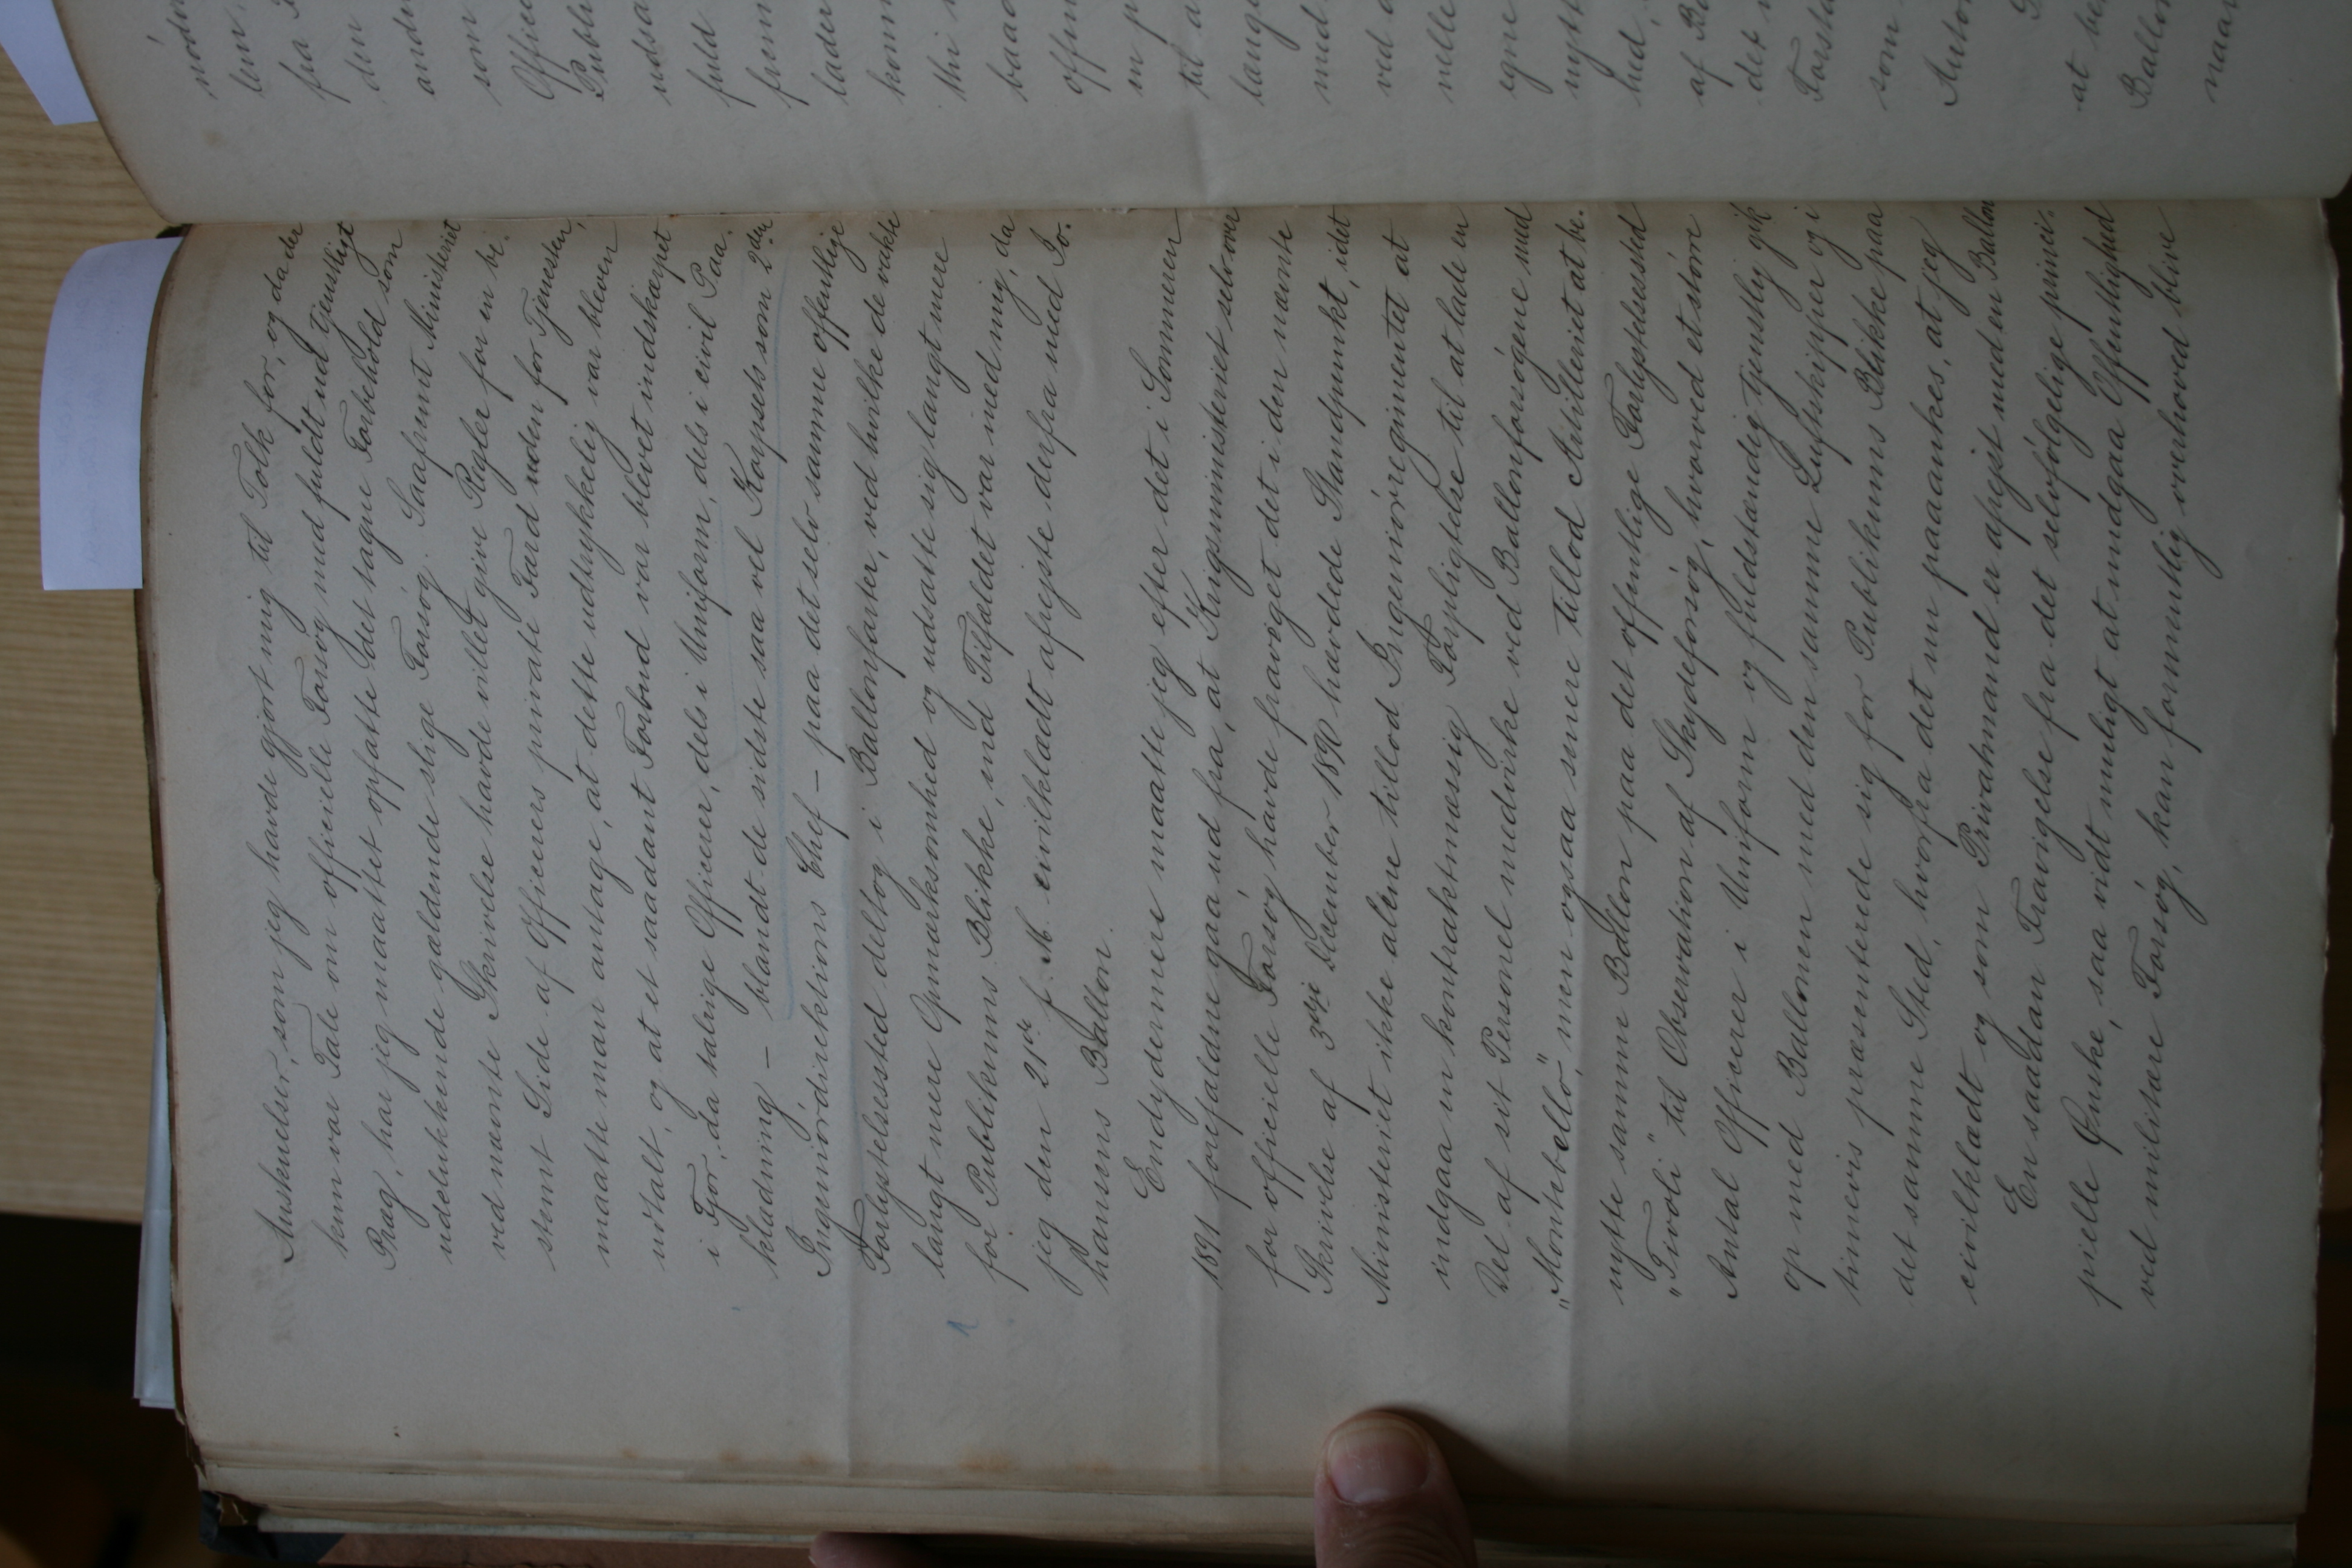 Anskuelser, som jeg havde gjort mig til Tolk for, og da der
kun var Tale om officielle Forsøg med fuldt ud tjenstligt
Præg, har jeg maattet opfatte det tagne Forbehold som
udelukkende gældende slige Forsøg. Saafremt Ministeriet
ved nævnte Skrivelse havde villet give Regler for en be-
stemt Side af Officerers private Færd uden for Tjenesten,
maatte man antage, at dette udtrykkelig var bleven
udtalt, og at et saadant Forbud var blevet indskærpet
i Fjor, da talrige Officerer, dels i Uniform, dels i civil Paa-
klædning – blandt de sidste saa vel Korpsets som 2den
Ingeniørdirektions Chef – paa det selv samme offentlige
Forlystelsessted deltog i Ballonfarter, ved hvilke de vakte
langt mere Opmærksomhed og udsatte sig langt mere
for Publikums Blikke, end Tilfældet var med mig, da
jeg den 21de f. M. civilklædt afrejste derfra med Jo-
hansens Ballon.
Endydermere maatte jeg efter det i Sommeren
1891 forefaldne gaa ud fra, at Krigsministeriet selv over
for officielle Forsøg havde fraveget det i den nævnte
Skrivelse af 3die December 1890 hævdede Standpunkt, idet
Ministeriet ikke alene tillod Ingeniørregimentet at
indgaa en kontraktmæssig Forpligtelse til at lade en
Del af sit Personel medvirke ved Ballonforsøgene ved
„Montebello", men ogsaa senere tillod Artilleriet at be-
nytte samme Ballon paa det offentlige Forlystelsessted
„Tivoli" til Observation af Skydeforsøg, hvorved et større
Antal Officerer i Uniform og fuldstændig tjenstlig gik
op med Ballonen med den samme Luftskipper og i
timevis præsenterede sig for Publikums Blikke paa
det samme Sted, hvorfra det nu paaankes, at jeg
civilklædt og som Privatmand er afrejst med en Ballon
En saadan Fravigelse fra det selvfølgelige princi-
pielle Ønske, saa vidt muligt at undgaa Offentlighed
ved militære Forsøg, kan formentlig overhoved blive